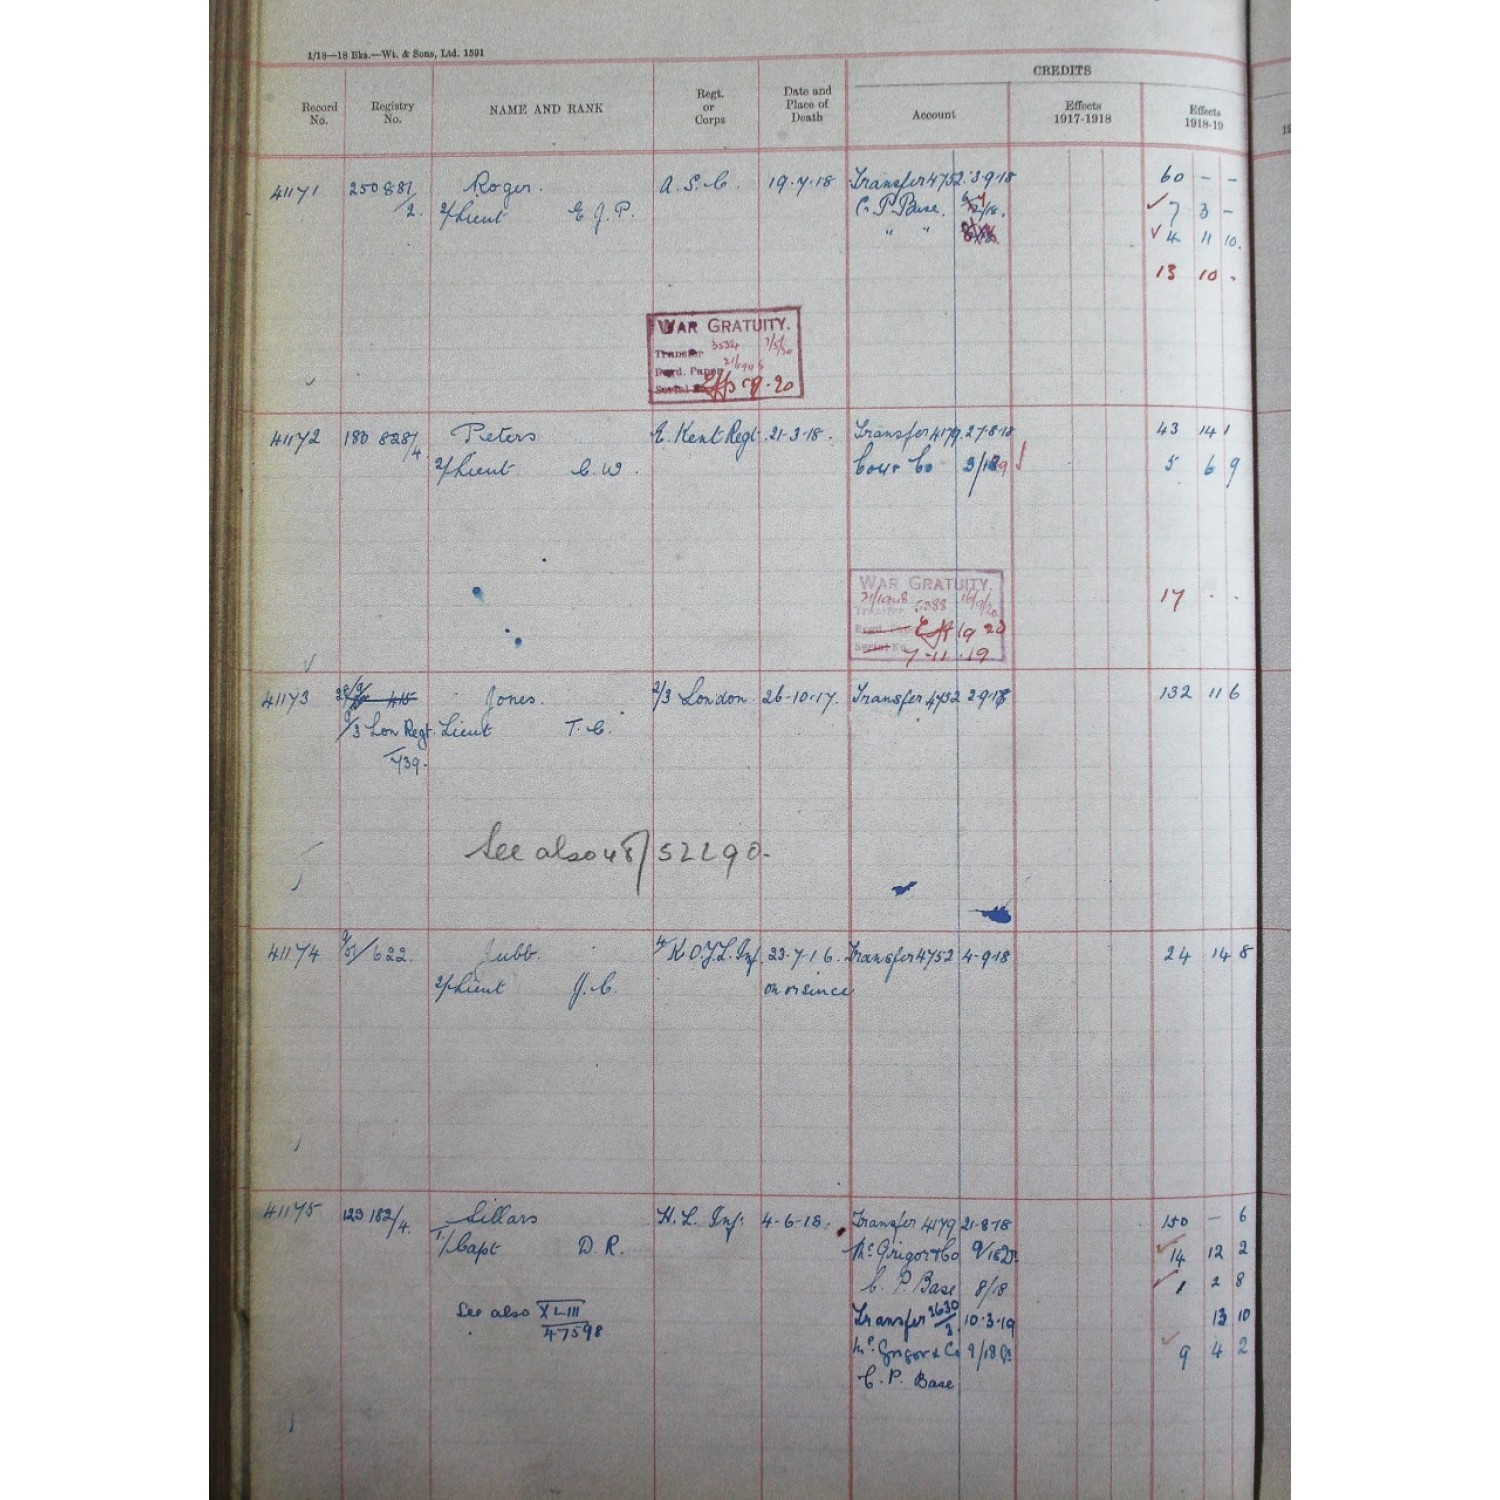 1/18—18 Bks.—Wt. & Sons, Ltd. 1591
CREDITS
Record No. Registry No. NAME AND RANK Regt. or Corps Date and Place of Death Account Effects 1917-1918 Effects 1918-19
41171 250881/2. Roger. A. S. C. 19.7.18 Transfer 4752 3.9.18 60 - -
2/Lieut E J. P. C. P. Base. 7 3 -
" " 4 11 10.
13 10 -
WAR GRATUITY.
Transfer 3534 7/5/20
Regd. Paper
Serial Eff 19-20
41172 180 828/4. Peters E. Kent Regt. 21-3-18. Transfer 4179. 27-8-18 43 14 1
2/Lieut C. W. Cour Co 5 6 9
WAR GRATUITY.
Transfer 5388
Regd. Eff 19 20
Serial No. 7-11-19
17 . .
41173 Jones. 2/3 London. 26-10-17. Transfer 4732 2.9.18 132 11 6
9/3 Lon Regt. Lieut T. C.
/739.
See also 48/52290.
41174 9/51/622. Jubb. 4 K O.Y.L. Inf. 23-7-16. Transfer 4752 4-9-18 24 14 8
2/Lieut J. C. on or since
41175 123 182/4. Sillars H. L. Inf. 4-6-18. Transfer 4179 21-8-18 150 - 6
T/Capt D. R. McGrigor & Co 9/18 14 12 2
C. P. Base 8/18 1 2 8
See also XLIII Transfer 2630/3 10.3.19 13 10
47598 McGrigor & Co 9/18 9 4 2
C. P. Base